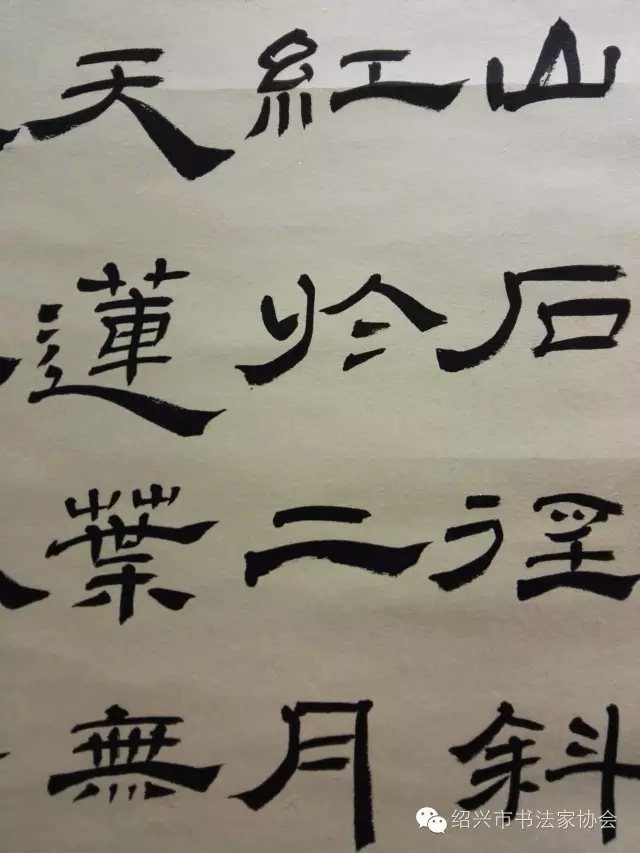 山石徑斜
紅於二月
天蓮葉無
绍兴市书法家协会